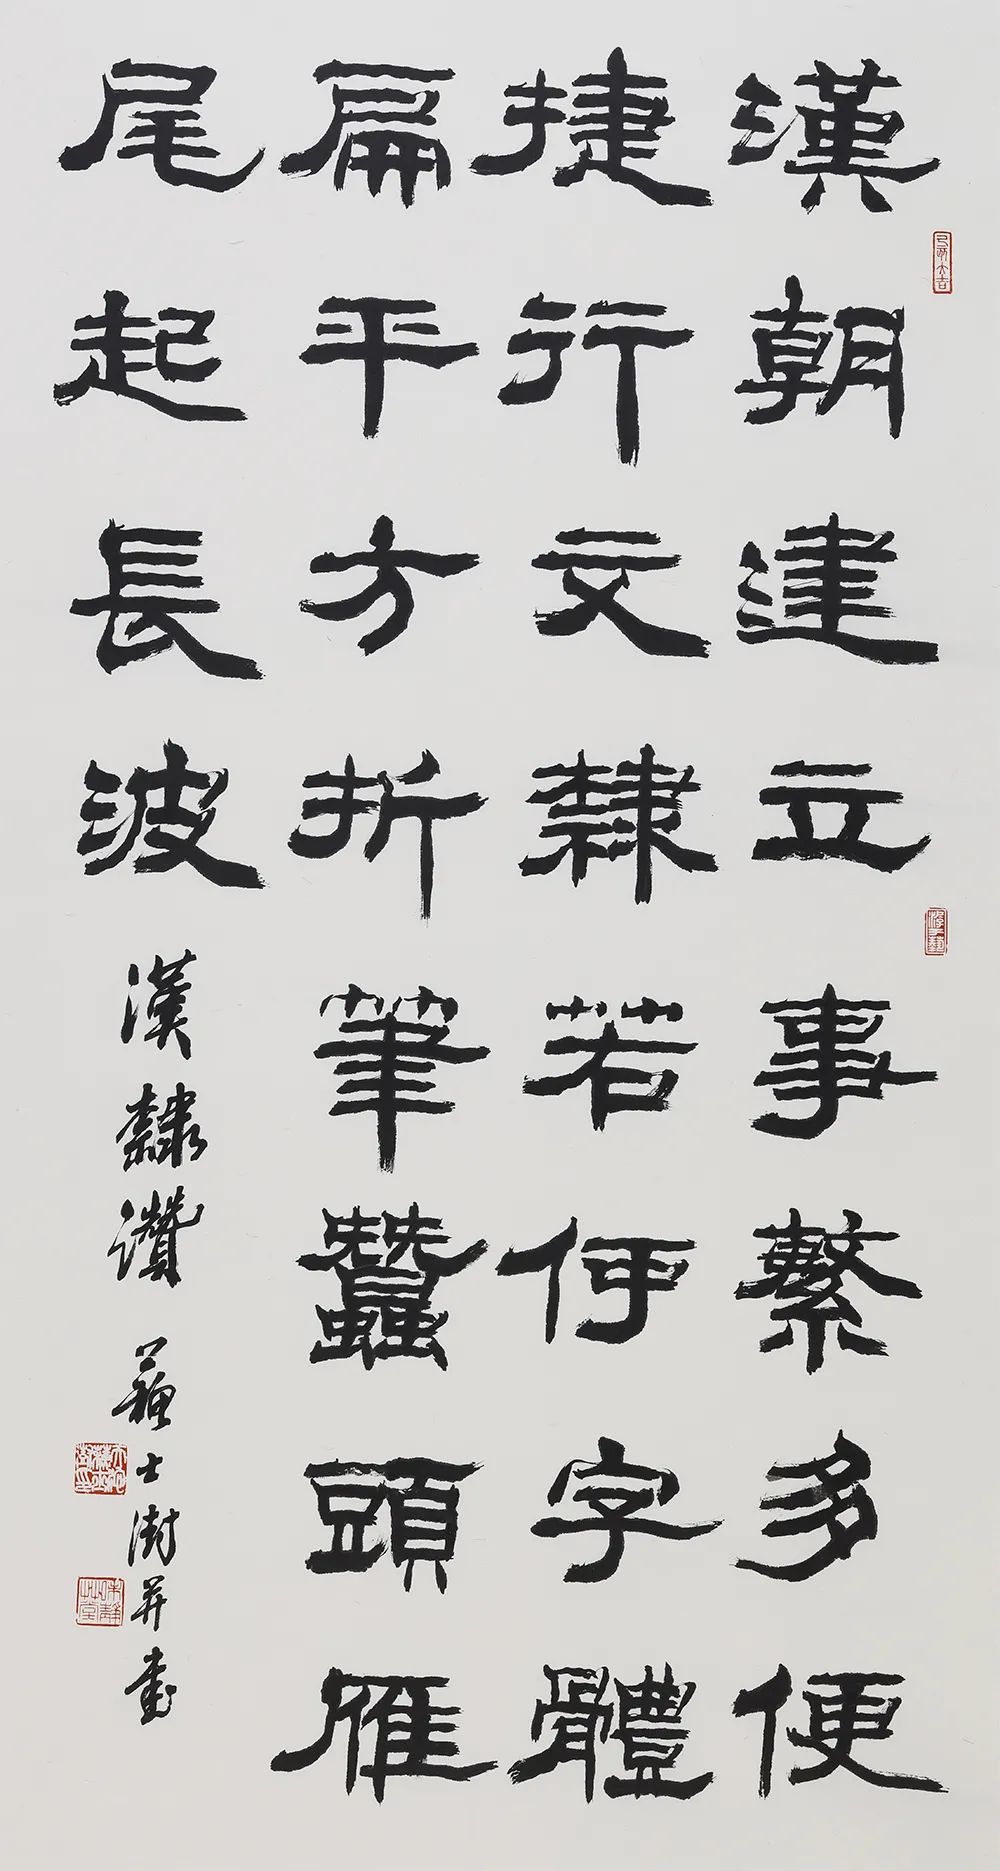 漢朝建立事繁多便
捷行文隸若何字體
扁平方折筆蠶頭雁
尾起長波
漢隸讚 蘇士澍并書
己亥大吉